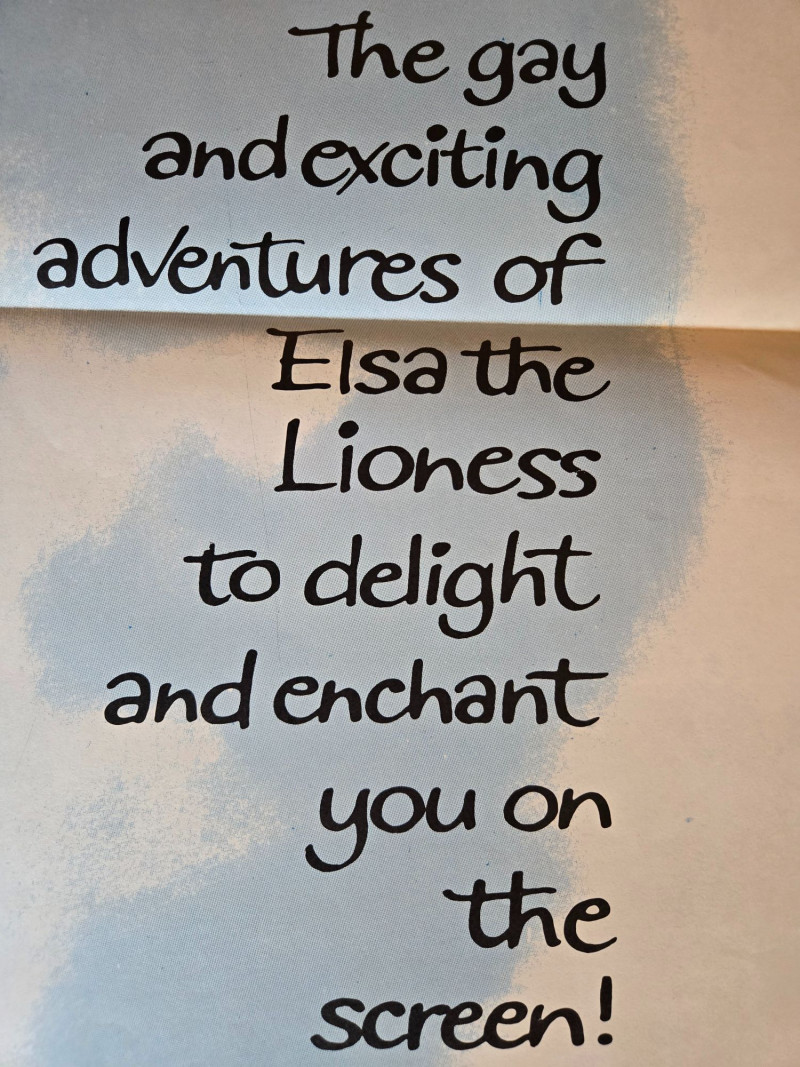 The gay
and exciting
adventures of
Elsa the
Lioness
to delight
and enchant
you on
the
screen!